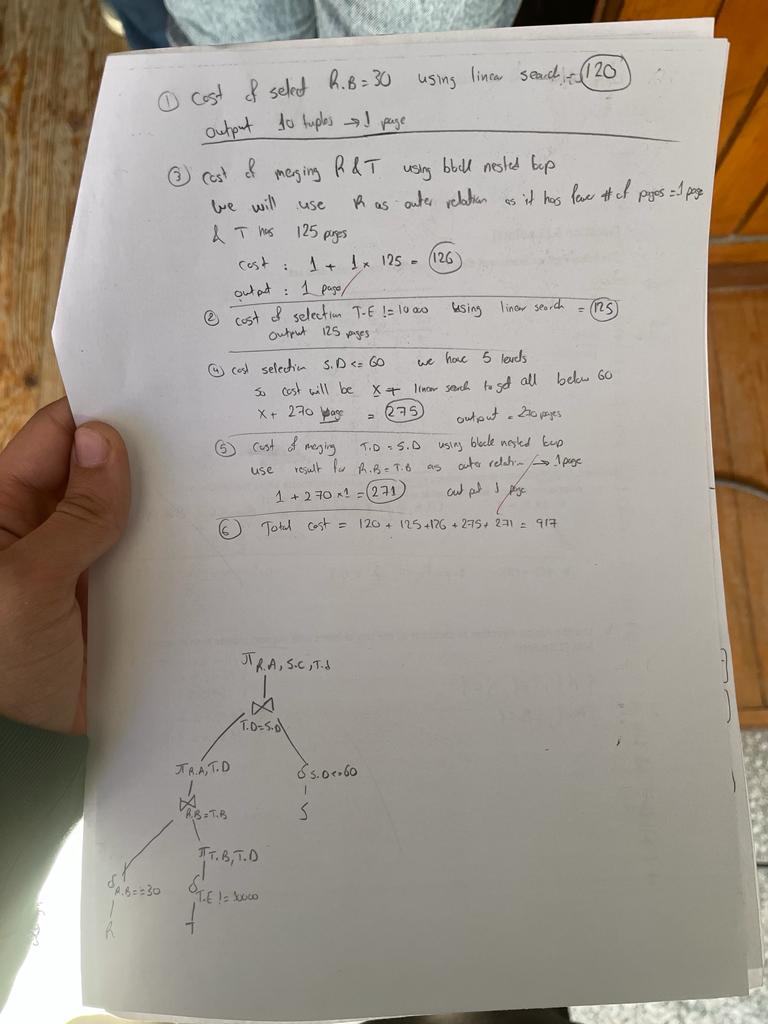 ① Cost of select R.B=30 using linear search := 120
output 10 tuples → 1 page
③ Cost of merging R & T using block nested loop
we will use R as outer relation as it has fewer # of pages = 1 page
& T has 125 pages
cost : 1 + 1 × 125 = 126
output : 1 page
② cost of selection T.E != 10000 using linear search = 125
output 125 pages
④ cost selection S.D <= 60 we have 5 levels
so cost will be x + linear search to get all below 60
x + 270 page = 275 output = 270 pages
⑤ cost of merging T.D = S.D using block nested loop
use result for R.B=T.B as outer relation → 1 page
1 + 270 × 1 = 271 output 1 page
⑥ Total cost = 120 + 125 + 126 + 275 + 271 = 917
π R.A, S.C, T.d
⋈
T.D=S.D
π R.A, T.D
δ S.D<=60
⋈
R.B=T.B
S
π T.B, T.D
δ R.B==30
δ T.E != 10000
R
T